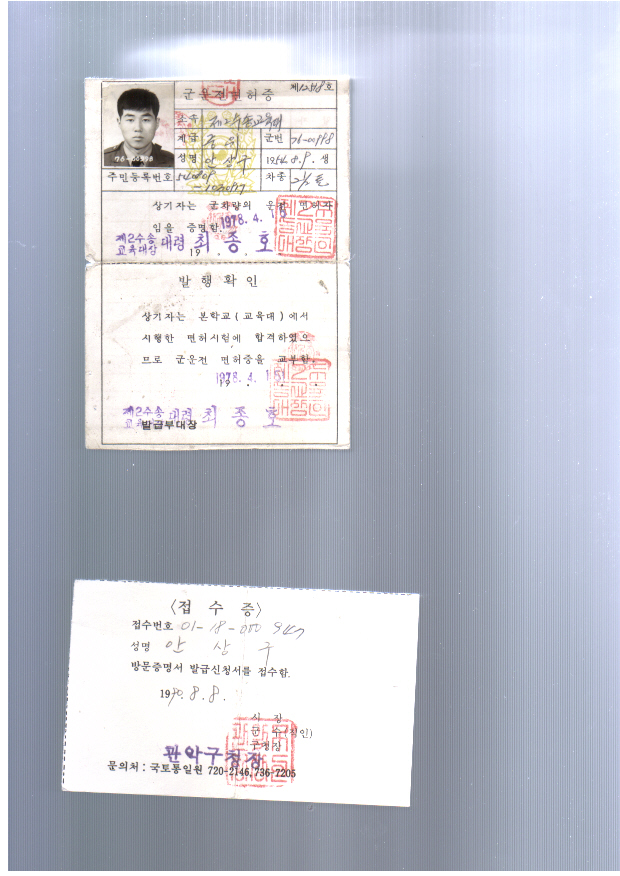 군운전면허증
소속 제2수송교육대
계급 중위 군번 76-00998
성명 안상구 1954.8.9. 생
주민등록번호 540809
차종
상기자는 군차량의 운전 면허자
임을 증명함
1978. 4.
제2수송
교육대장 대령 최종호
19 . .
발행확인
상기자는 본학교(교육대)에서
시행한 면허시험에 합격하였으
므로 군운전 면허증을 교부함.
1978. 4.
제2수송 대령 최종호
발급부대장
〈접수증〉
접수번호 01-18-000
성명 안상구
방문증명서 발급신청서를 접수함.
1990. 8. 8.
시장
군수(직인)
구청장
관악구청장
문의처 : 국토통일원 720-2146, 736-7205